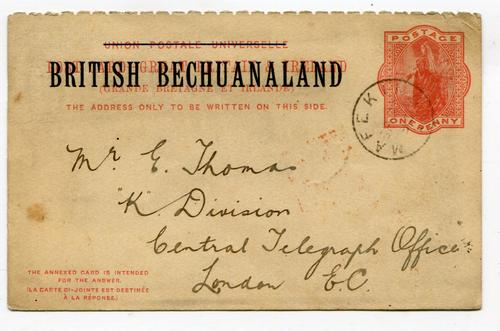 UNION POSTALE UNIVERSELLE
BRITISH BECHUANALAND
(GRANDE BRETAGNE ET IRLANDE)
THE ADDRESS ONLY TO BE WRITTEN ON THIS SIDE.
POSTAGE
ONE PENNY
MAFEK
Mr E. Thomas
"K" Division
Central Telegraph Office
London E.C.
THE ANNEXED CARD IS INTENDED
FOR THE ANSWER.
(LA CARTE CI-JOINTE EST DESTINÉE
À LA RÉPONSE.)